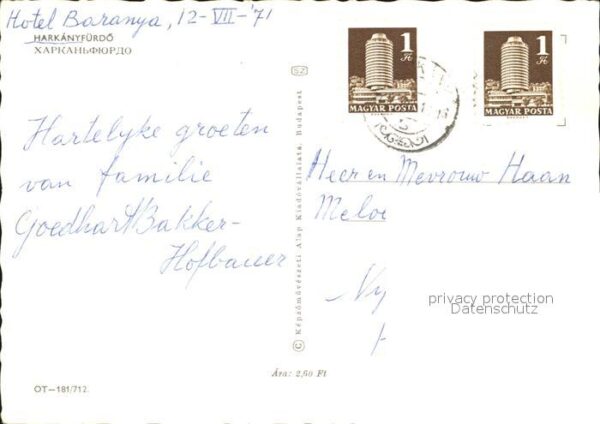 Hotel Baranya, 12-VII-'71
HARKÁNYFÜRDŐ
ХАРКАНЬФЮРДО
Hartelyke groeten
van familie
Goedhart/Bakker-
Hofbauer
OT—181/712.
SZ
© Képzőművészeti Alap Kiadóvállalata, Budapest
Ára: 2,60 Ft
1 Ft
MAGYAR POSTA
1 Ft
MAGYAR POSTA
Heer en Mevrouw Haan
privacy protection
Datenschutz